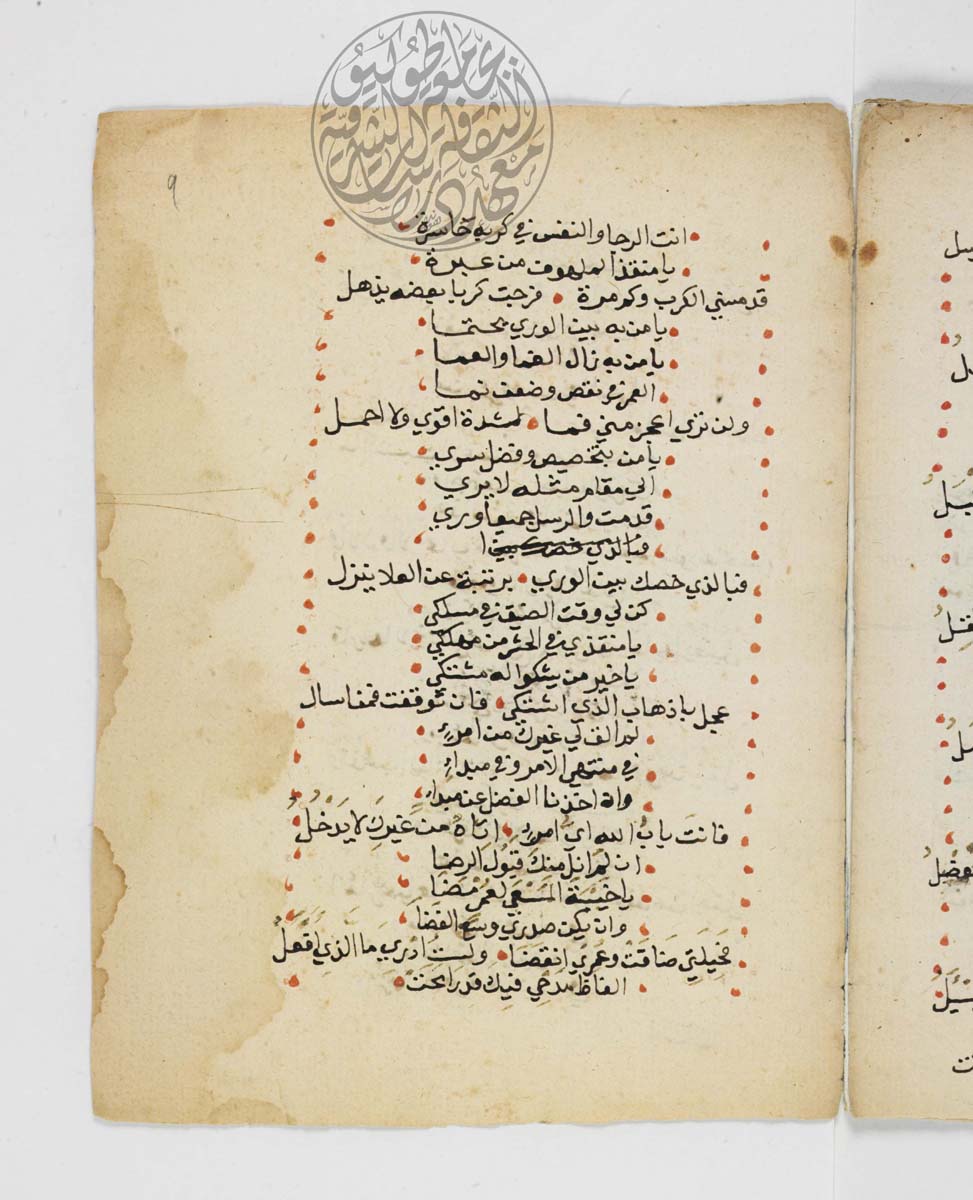 ٩
انت الرجا والنفس في كربة خاسرة
يا منقذ الملهوف من عبرة
قد مسني الكرب وكم مرة فرجت كربا بعضه يذهل
يا من به بيت الوري
يا من به زال العما والعما
العمر في نقص وضعف نما
ولن تري اعجز مني فما لشدة اقوي ولا احمل
يا من بتخصيص وفضل سري
الي مقام مثله لا يري
قدمت والرسل جميعا وري
فبالذي خصك
فبالذي خصك بين الوري برتبة عن العلا ينزل
كن لي وقت الضيق في مسلكي
يا منقذي في الحشر من مهلكي
يا خير من يشكوا له مشتكي
عجل باذهاب الذي اشتكي فان توقفت فمن اسال
لم الف لي غيرك من امرء
في منتهي الامر وفي مبداء
وان اخذنا الفضل عن مبداء
فانت باب الله اي امرء اتاه من غيرك لا يدخل
ان لم انل منك قبول الرضا
يا خيبة المسعي لعمر مضا
وان يكن صدري وسع الفضا
فحيلتي ضاقت وعمري انقضا ولست ادري ما الذي افعل
الفاظ مدحي فيك قد رابحت